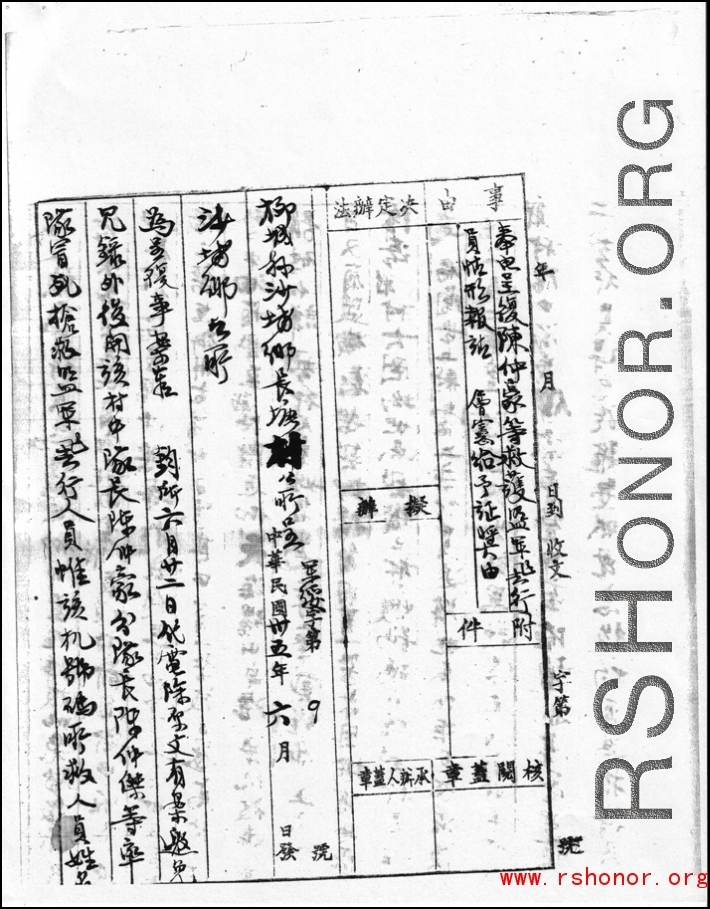 年 月 日到 收文 字第 號
事由
奉电呈復陳仲家等救護盟軍飛行
員情形報請 層憲給予証奬由
附件
決定辦法
擬辦
核閱蓋章
承辦人蓋章
字第 9 號
柳城縣沙埔鄉長塘村公所呈 中華民國卅五年六月 日發
沙埔鄉公所
為呈復事案奉 鈞所六月廿二日代電除原文有案邀免
冗錄外後開該村中隊長陳仲家分隊長陳仲傑等率
隊冒死搶救盟軍飛行人員惟該机號碼所救人員姓名
RSHONOR.ORG
www.rshonor.org